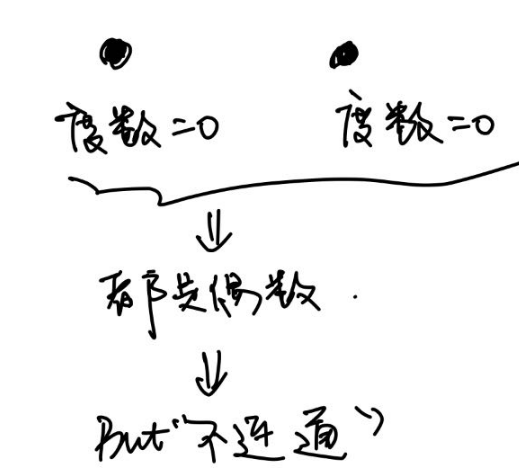 度数=0 度数=0
都是偶数.
But“不连通”